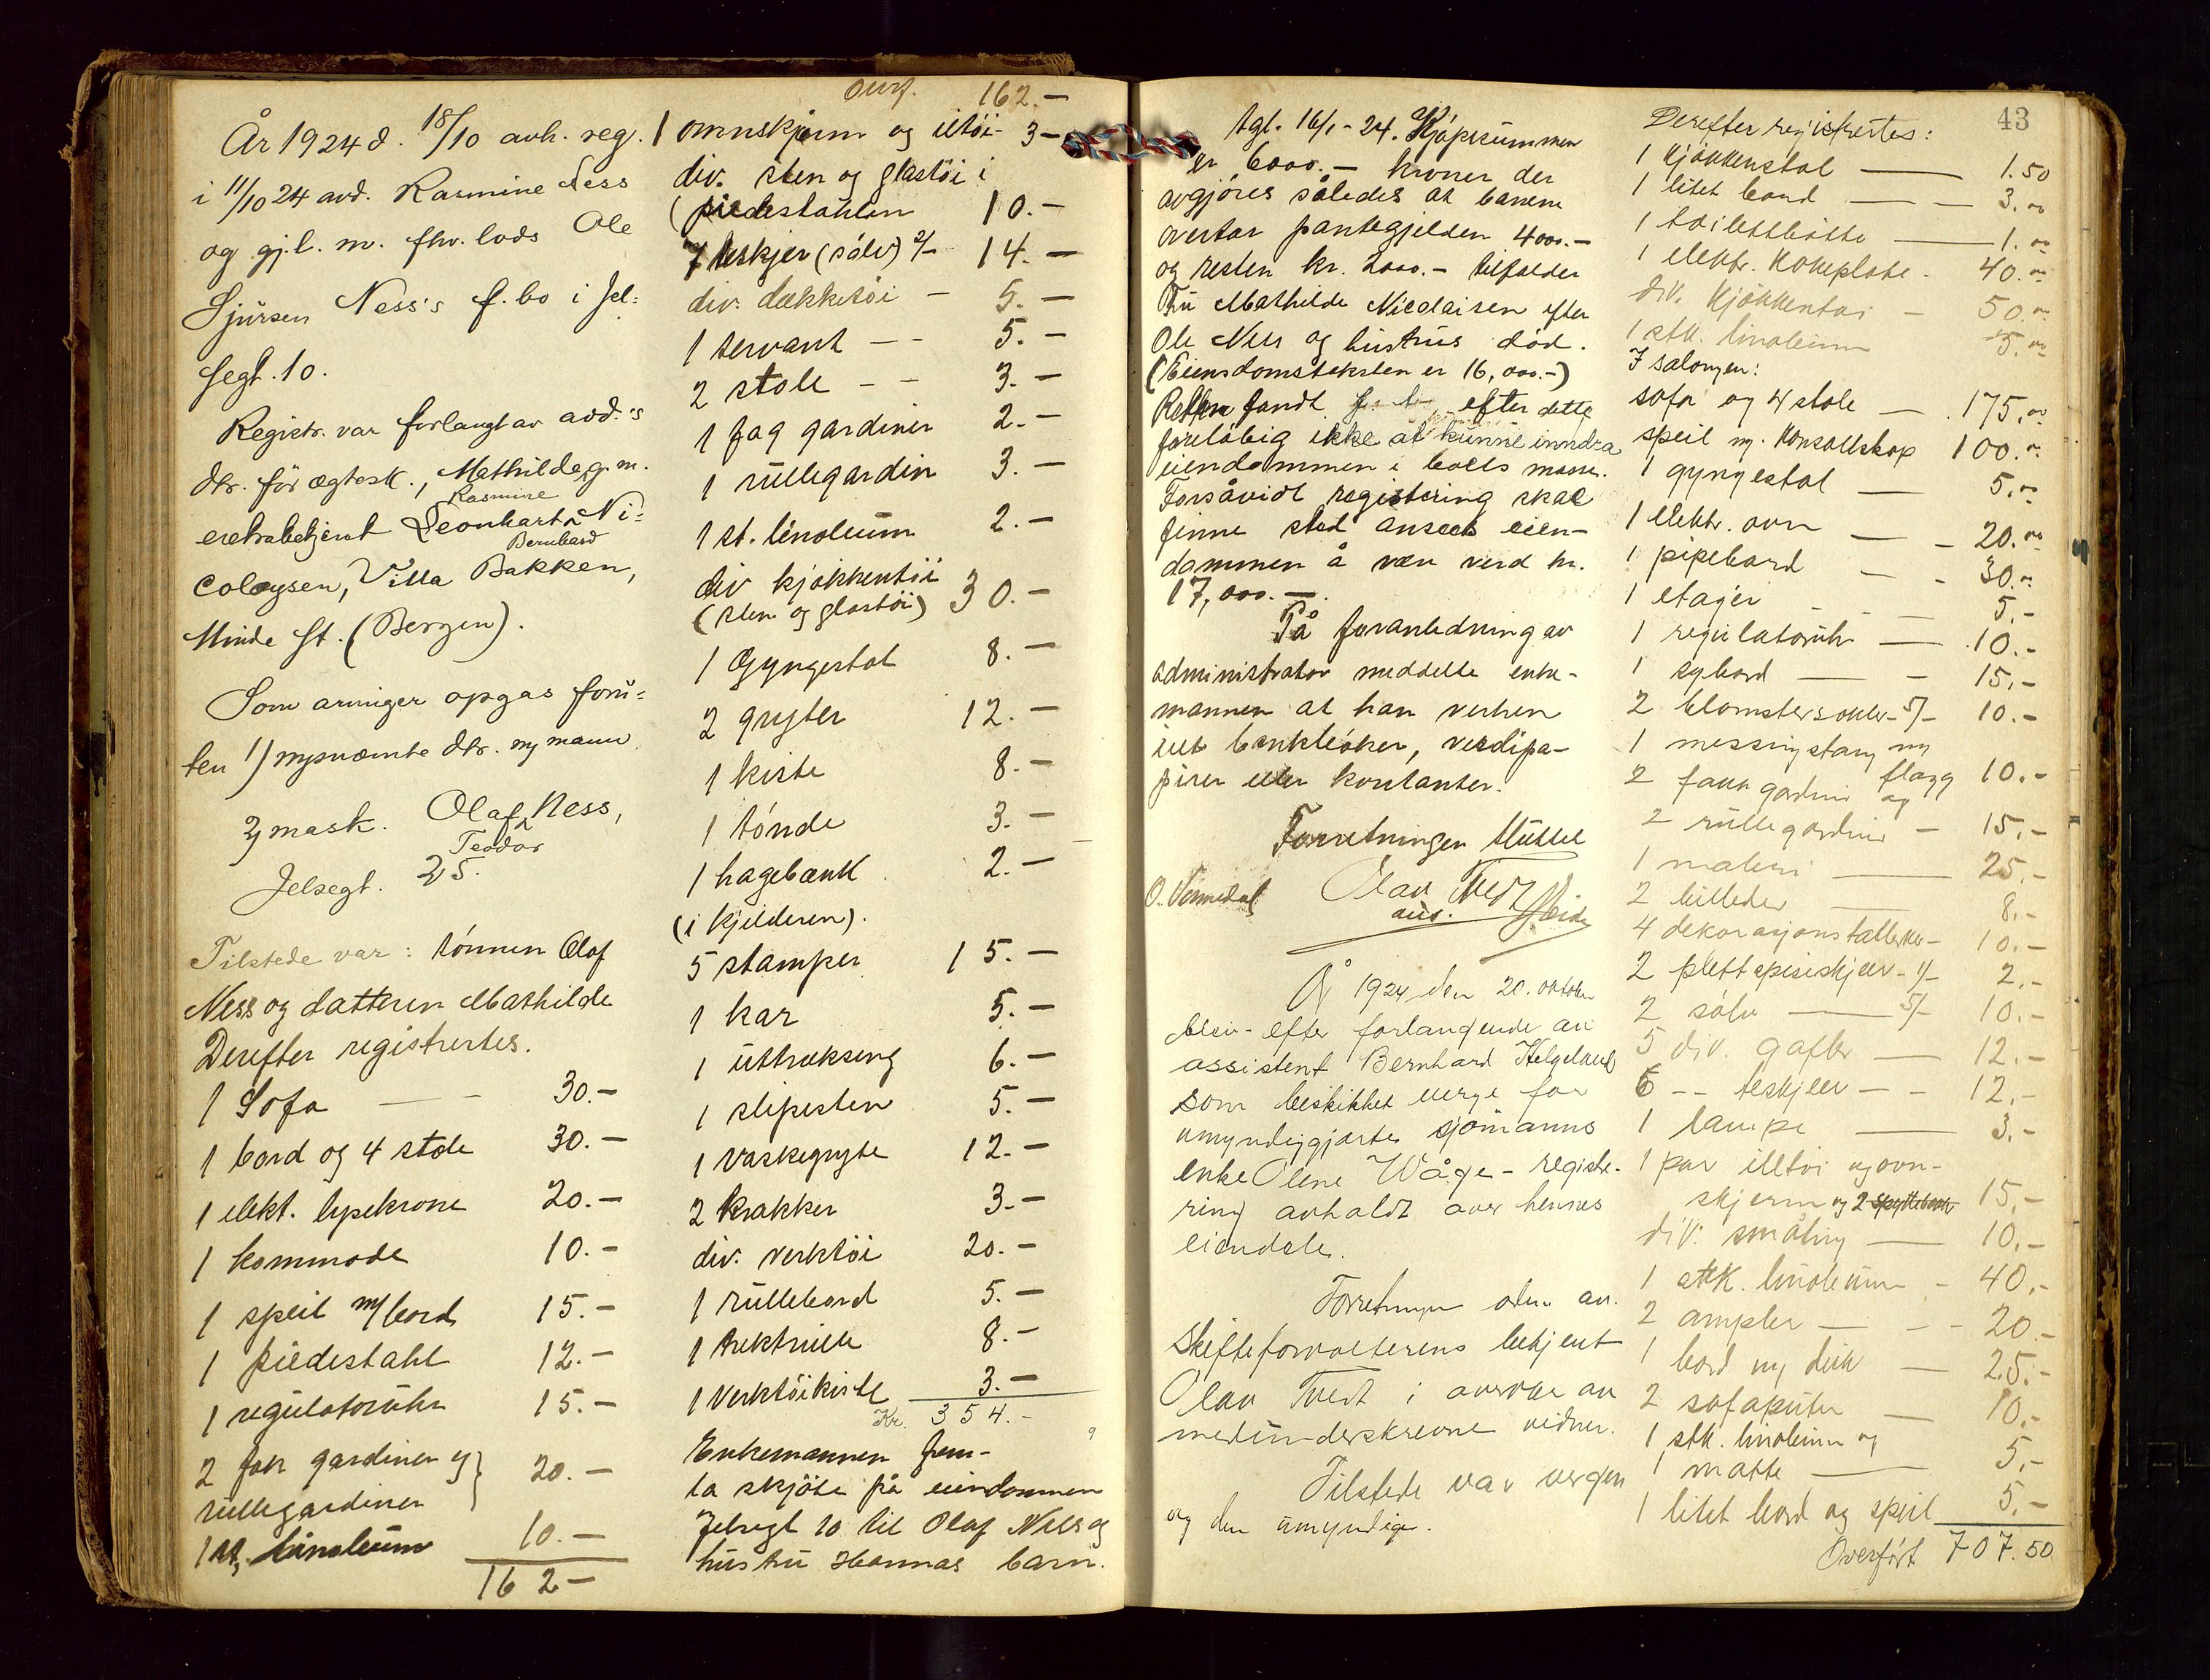 År 1924 d. 18/10 avh. reg.
i 11/10 24 avd. Rasmine Ness
og gj.l. m. fhv. lods Ole
Sjursen Ness's f.bo i Jel=
segt. 10.
Registr. var forlangt av avd.'s
dtr. för ægtesk., Mathilde g. m.
Rasmine
extrabetjent Leonhart Ni=
Bernhard
colaysen, Villa Bakken,
Minde St. (Bergen).
Som arvinger opgas foru=
ten 1) nysnævnte dtr. m/ mann
2) mask. Olaf Ness,
Teodor
Jelsegt. 25.
Tilstede var: sönnen Olaf
Ness og datteren Mathilde
Derefter registrertes.
1 Sofa — — 30.—
1 bord og 4 stole 30.—
1 elekt. lysekrone 20.—
1 kommode 10.—
1 speil m/bord 15.—
1 piedestahl 12.—
1 regulatoruhr 15.—
2 fak gardiner og } 20.—
rullegardiner
1 st. linoleum 10.—
162—
Overf. 162.—
1 ovnskjerm og iltöi 3—
div. sten og glastöi i
(piedestahlen 10.—
7 teskjer (sölv) 2/- 14.—
div. dækketöi — 5.—
1 servant — — 5.—
2 stole — — 3.—
1 fag gardiner 2.—
1 rullegardin 3.—
1 st. linoleum 2.—
div kjökkentöi
(sten og glastöi) 30.—
1 Gyngestol 8.—
2 gryter 12.—
1 kiste 8.—
1 tönde 3.—
1 hagebænk 2.—
(i kjelderen).
5 stamper 15.—
1 kar 5.—
1 uttrækseng 6.—
1 slipesten 5.—
1 vaskegryte 12.—
2 krakker 3.—
div. verktöi 20.—
1 rullebord 5.—
1 trektrille 8.—
1 verktöikiste 3.—
Kr. 354.—
Enkemannen frem-
la skjöte på eiendommen
Jelsegt 10 til Olaf Ness og
hustru Hannas barn.
tgl. 16/1-24. Kjöpesummen
er 6000.— kroner der
avgjöres således at barnene
overtar pantegjelden 4000.—
og resten kr. 2000.— tilfalder
Fru Mathilde Nicolaisen efter
Ole Ness og hustrus död.
(Eiendomstaksten er 16,000.—)
Retten fandt efter dette
foreløbig ikke at kunne inndra
eiendommen i boets masse.
Forsåvidt registrering skal
finne sted ansees eien-
dommen å være verd kr.
17,000.—.
På foranledning av
administrator meddelte enke-
mannen at han verken
eier bankböker, verdipa-
pirer eller kontanter.
Forretningen sluttet
O. Vennedal Olav Tvedt
aut.
År 1924 den 20. oktober
blev efter forlangende av
assistent Bernhard Helgeland
som beskikket verge for
umyndiggjorte sjömanns
enke Olene Wåge - registre-
ring avholdt over hennes
eiendele.
Forretningen adm. av
Skifteforvalterens betjent
Olav Tvedt i overvær av
medunderskrevne vidner.
Tilstede var vergen
og den umyndige.
43
Derefter registrertes:
1 kjökkenstol — 1.50
1 litet bord — — 3.00
1 toilettbötte — 1.00
1 elektr. kokeplate - 40.00
div. kjökkentöi — 50.00
1 stk. linoleum 5.00
I salongen:
sofa og 4 stole — 175.00
speil m. konsollskap 100.00
1 gyngestol — 5.00
1 elektr. ovn — - 20.00
1 pipebord — - 30.00
1 etager - - 5.-
1 regulatoruhr — 10.-
1 sybord — - 15.-
2 blomstersokler - 5/- 10.-
1 messingstang m/
flagg 10.-
2 fakk gardiner og
2 rullegardiner — 15.-
1 maleri — 25.-
2 billeder — 8.-
4 dekorasjonstallerker - 10.-
2 plett spiseskjeer - 1/- 2.-
2 sölv — 5/- 10.-
5 div. gafler — 12.-
6 -- teskjeer — - 12.-
1 lampe — 3.-
1 par illtöi og ovn-
skjerm og 2 spyttebakk 15.-
div. småting — 10.-
1 stk. linoleum - 40.-
2 ampler — - - 20.-
1 bord m/ duk — 25.-
2 sofaputer — 10.-
1 stk. linoleum og
1 matte — 5.-
1 litet bord og speil 5.-
Overfört 707.50